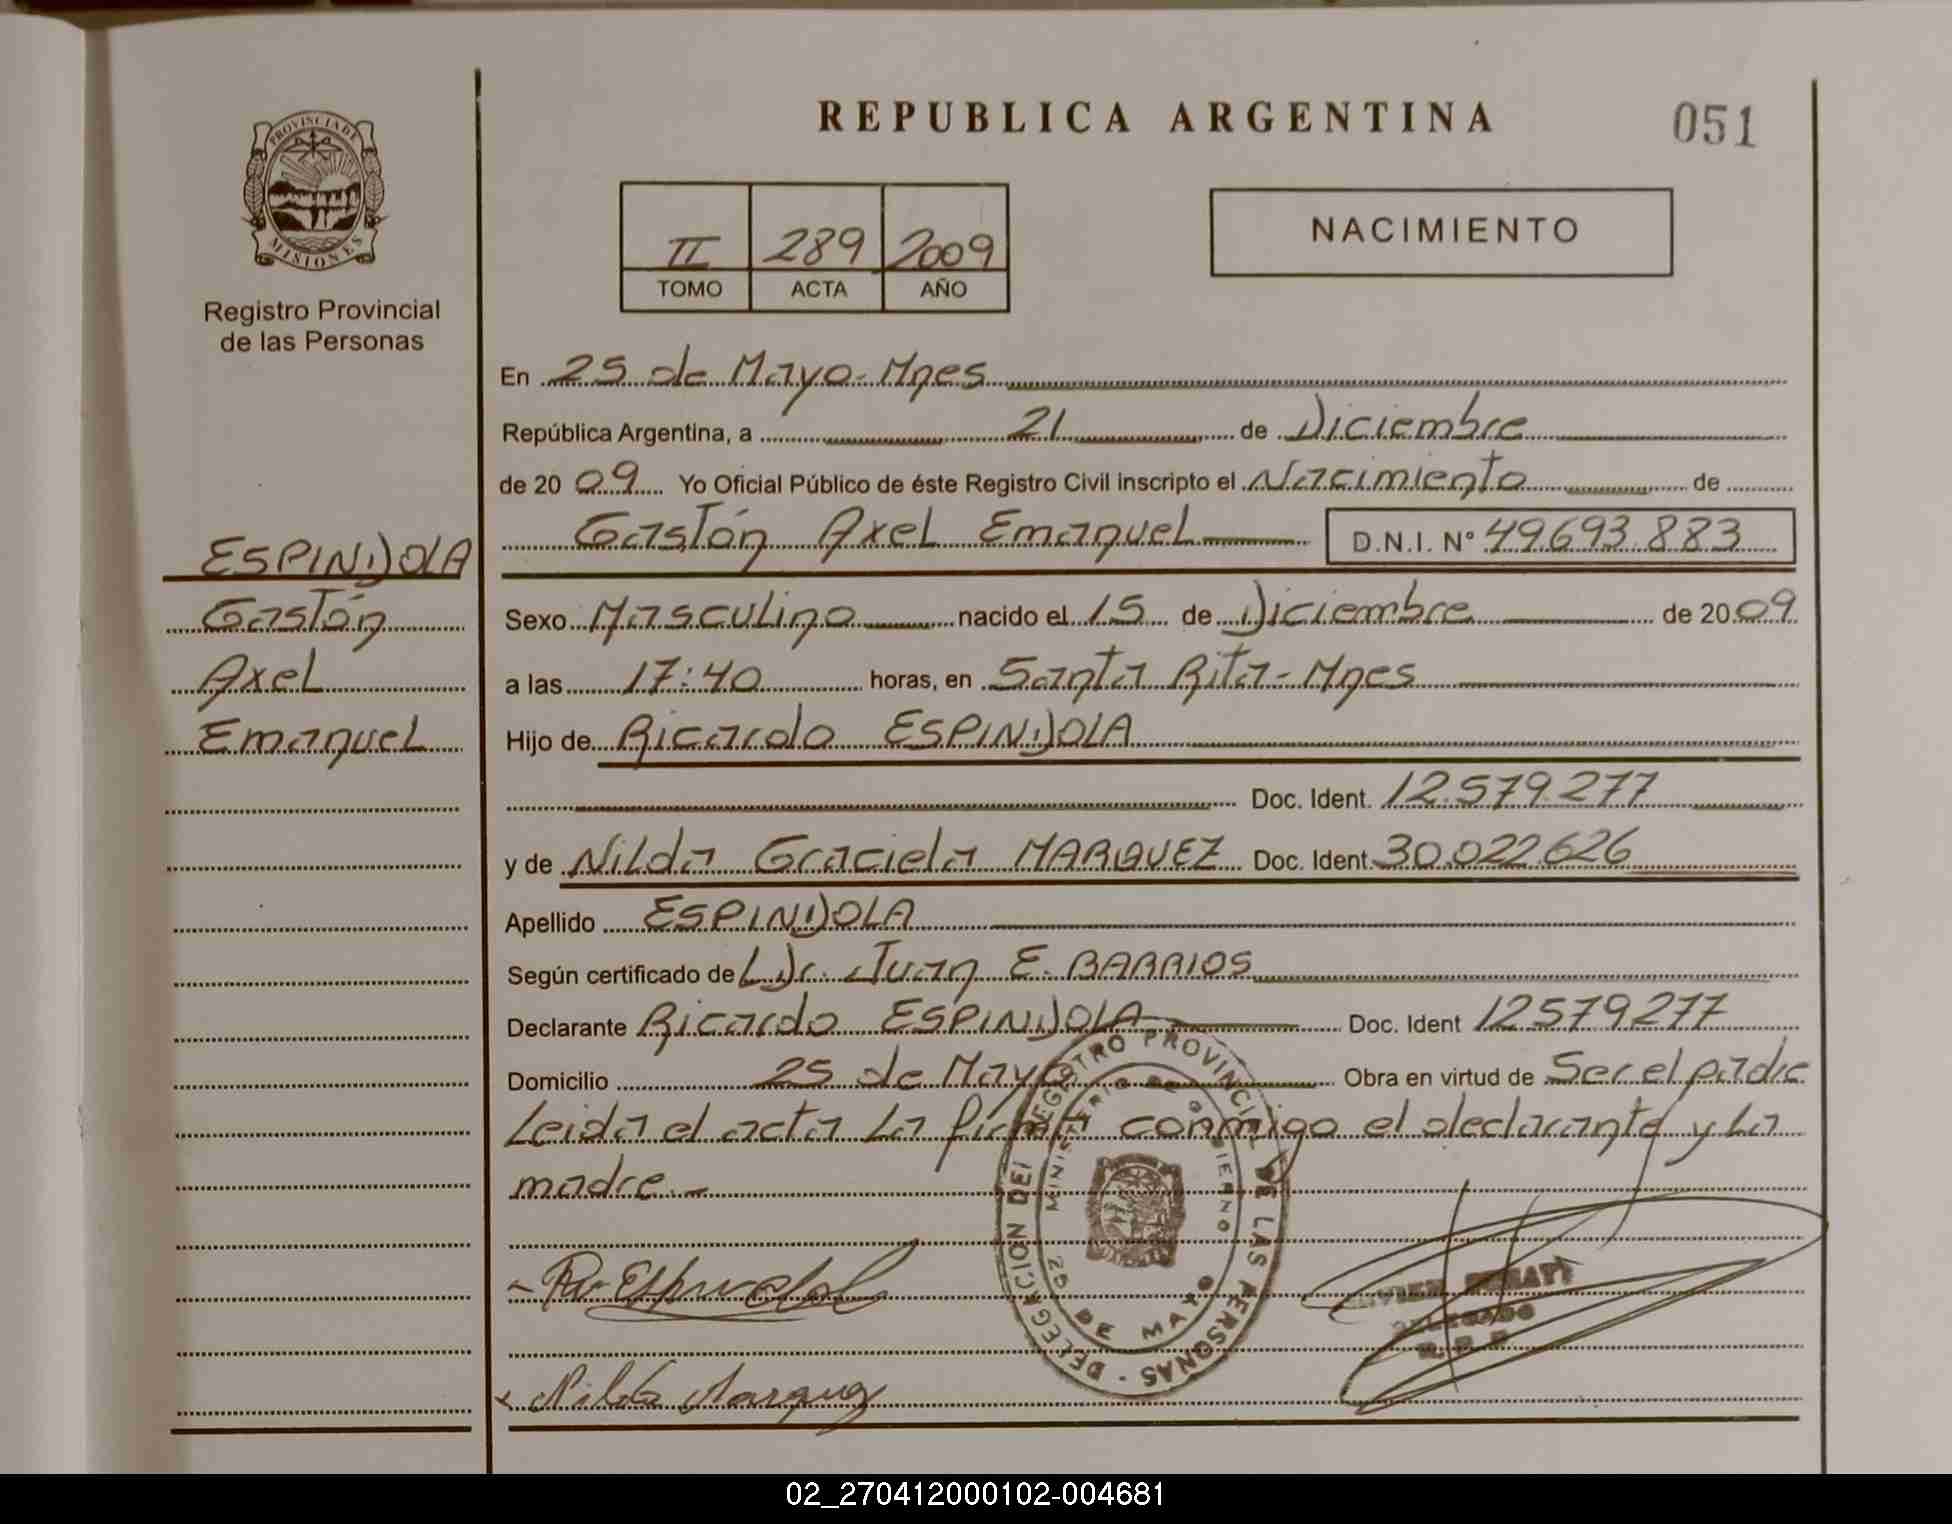 PROVINCIA DE
MISIONES
Registro Provincial
de las Personas
ESPINDOLA
Gastón
Axel
Emanuel
REPUBLICA ARGENTINA
051
II 289 2009
TOMO ACTA AÑO
NACIMIENTO
En 25 de Mayo-Mnes
República Argentina, a 21 de Diciembre
de 2009 Yo Oficial Público de éste Registro Civil inscripto el Nacimiento de
Gastón Axel Emanuel D.N.I. N° 49.693.883
Sexo Masculino nacido el 15 de Diciembre de 2009
a las 17:40 horas, en Santa Rita-Mnes
Hijo de Ricardo ESPINDOLA
Doc. Ident. 12.579.277
y de Nilda Graciela MARQUEZ Doc. Ident. 30.022.626
Apellido ESPINDOLA
Según certificado de Dr. Juan E. BARRIOS
Declarante Ricardo ESPINDOLA Doc. Ident 12579277
Domicilio 25 de Mayo Obra en virtud de Ser el padre
Leida el acta La firma conmigo el declarante y La
madre.-
DELEGACION DEL REGISTRO PROVINCIAL DE LAS PERSONAS -
MINISTERIO DE GOBIERNO
DE MAYO
Nilda Marquez
DELEGADO
02_270412000102-004681